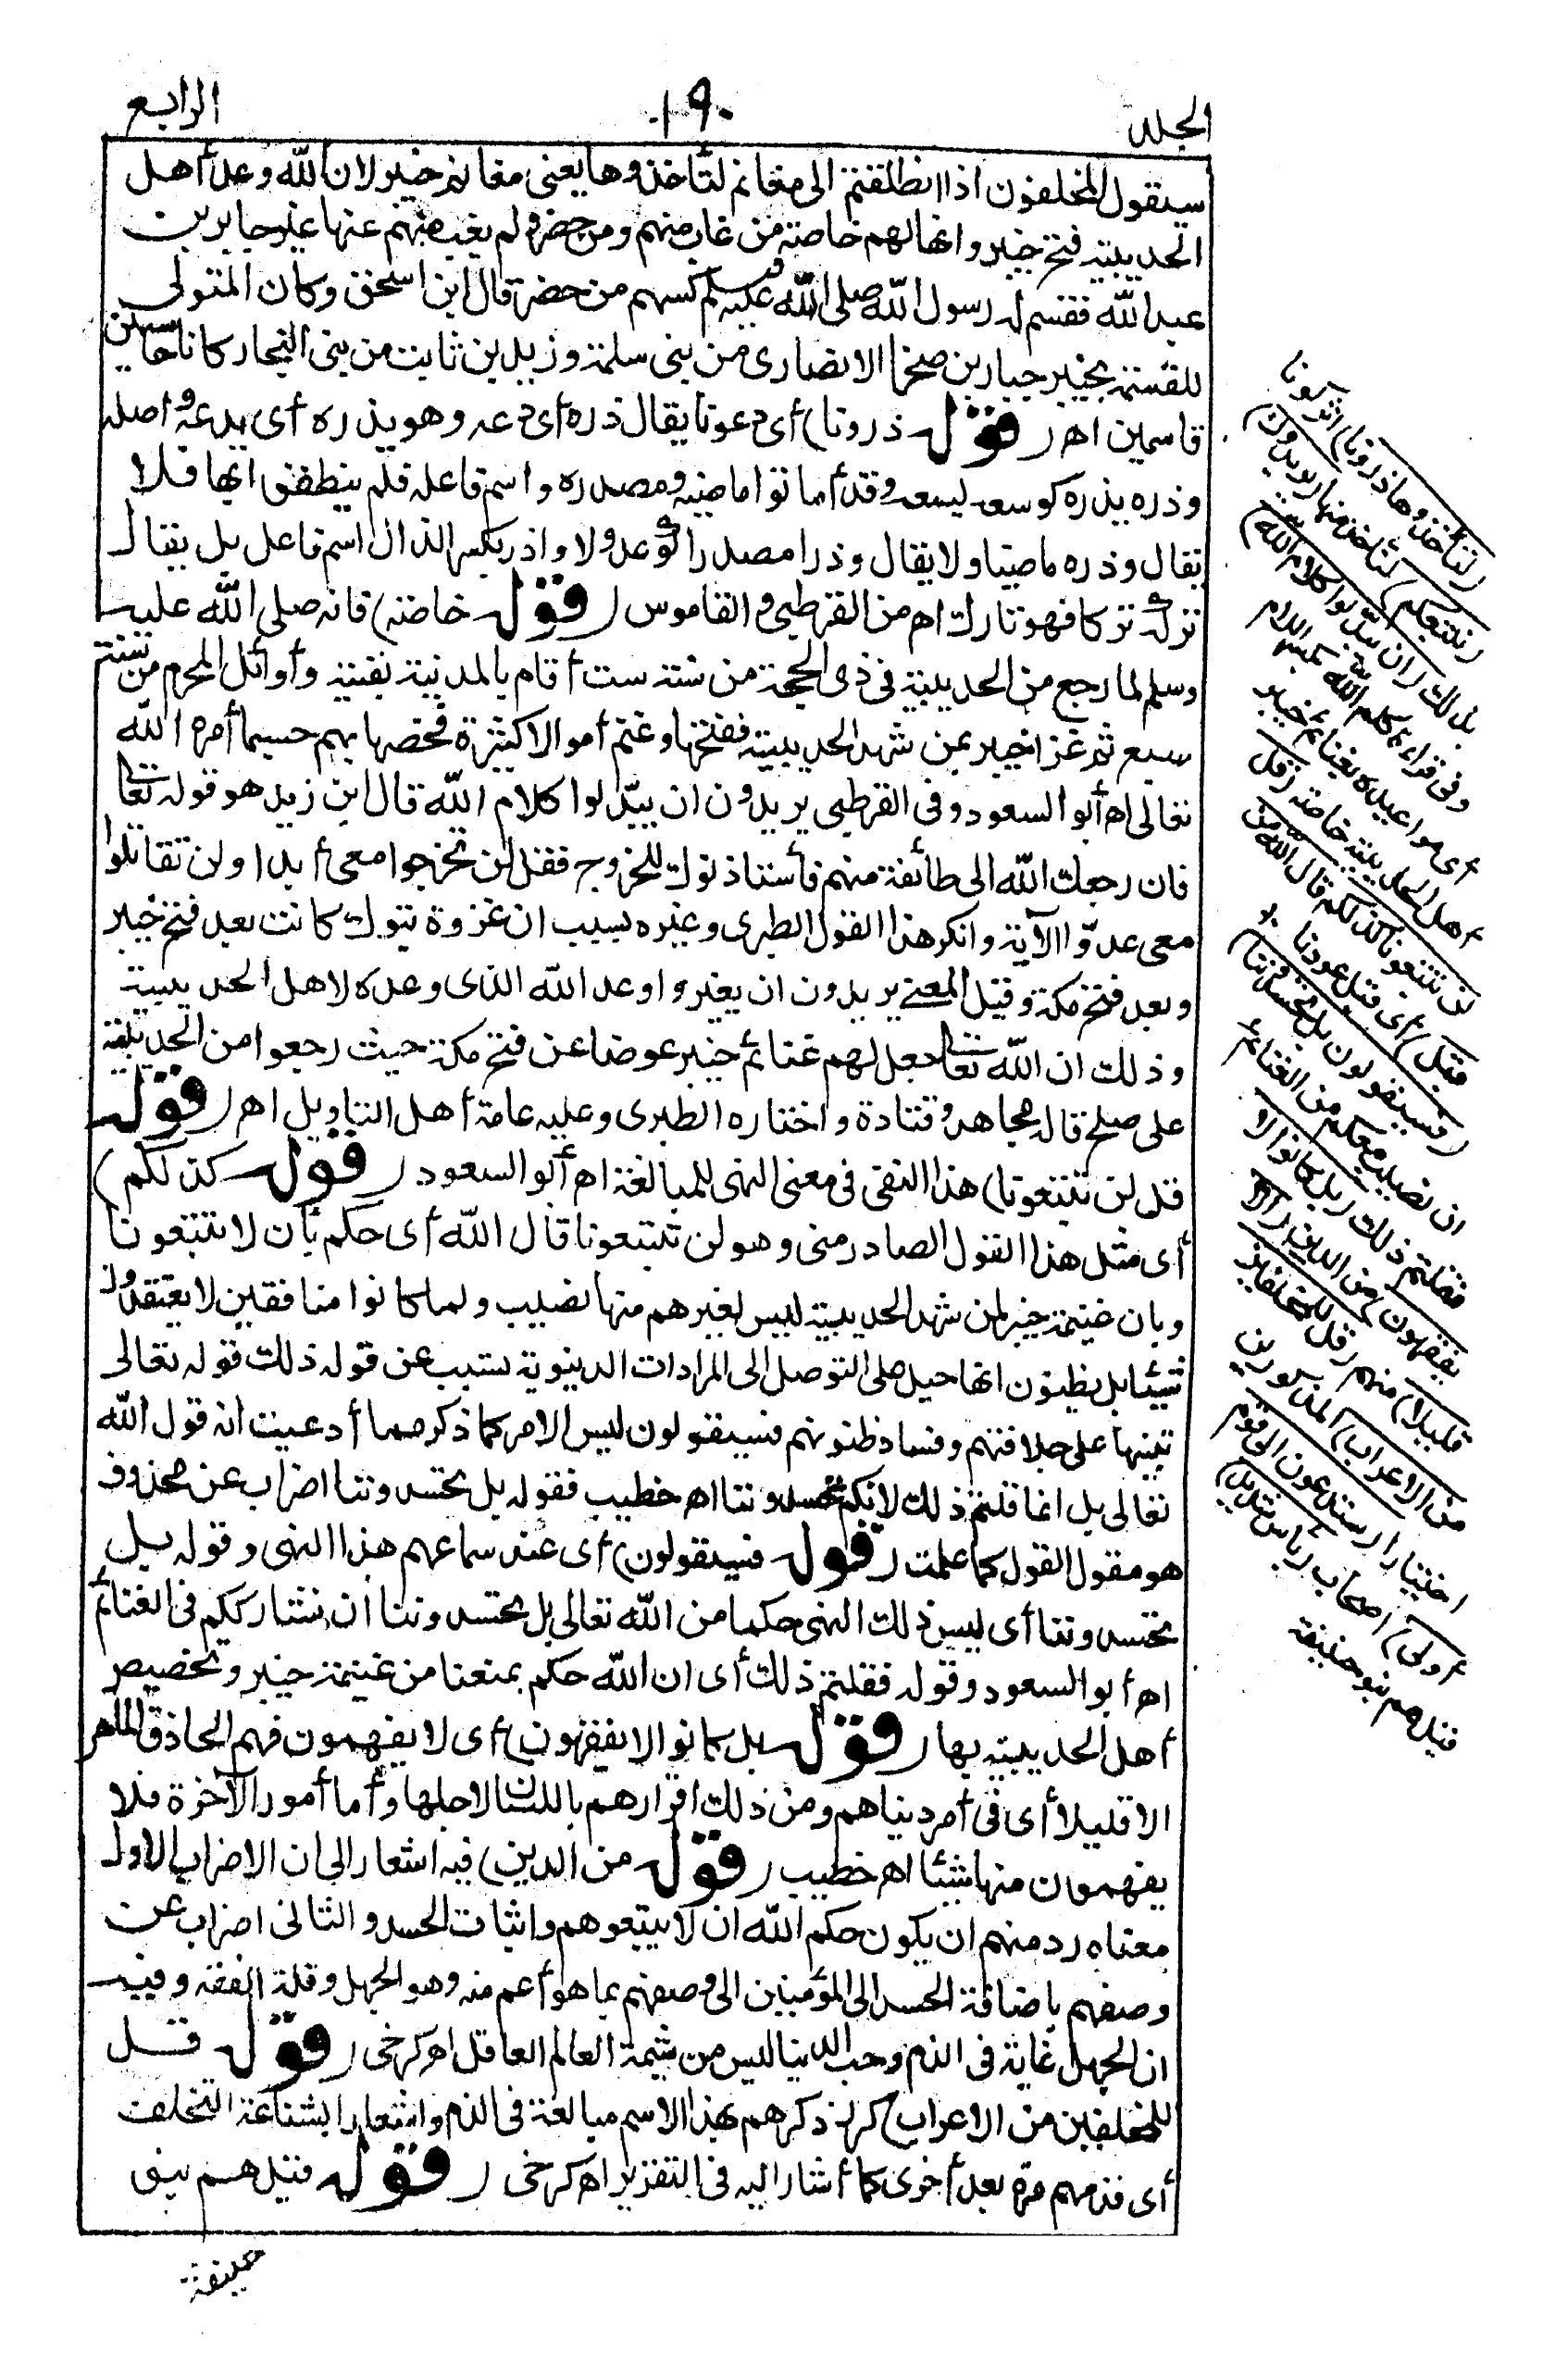 الجلد
١٩٠
الرابع
سيقول المخلفون اذا انطلقتم الى مغانم لتأخذوها يعنى مغانم خيبر لان الله وعد أهل
الحديبية فتح خيبر وانها لهم خاصة من غاب منهم ومن حضر ولم يغب منهم عنها غير جابر بن
عبد الله فقسم له رسول الله صلى الله عليه وسلم كسهم من حضر قال ابن اسحق وكان المتولى
للقسمة بخيبر جبار بن صخر الانصارى من بنى سلمة وزيد بن ثابت من بنى النجار كانا حاسبين
قاسمين اهـ (قوله ذرونا) أى دعونا يقال ذره أى دعه وهو يذره أى يدعه وأصله
وذره يذره كوسعه يسعه وقد أماتوا ماضيه ومصدره واسم فاعله فلم ينطقوا بها فلا
يقال وذره ماضيا ولا يقال وذرا مصدرا كوعد ولا واذر بكسر الذال اسم فاعل بل يقال
تركه تركا فهو تارك اهـ من القرطبى والقاموس (قوله خاصة) فانه صلى الله عليه
وسلم لما رجع من الحديبية فى ذى الحجة من سنة ست أقام بالمدينة بقيته وأوائل المحرم من سنة
سبع ثم غزا خيبر بمن شهد الحديبية ففتحها وغنم أموالا كثيرة فخصها بهم حسبما أمره الله
تعالى اهـ أبو السعود وفى القرطبى يريدون ان يبدّلوا كلام الله قال ابن زيد هو قوله تعالى
فان رجعك الله الى طائفة منهم فاستأذنوك للخروج فقل لن تخرجوا معى أبدا ولن تقاتلوا
معى عدوّا الآية وانكر هذا القول الطبرى وغيره بسبب ان غزوة تبوك كانت بعد فتح خيبر
وبعد فتح مكة وقيل المعنى يريدون ان يغيروا وعد الله الذى وعده لاهل الحديبية
وذلك ان الله تعالى جعل لهم غنائم خيبر عوضا عن فتح مكة حيث رجعوا من الحديبية
على صلح قاله مجاهد وقتادة واختاره الطبرى وعليه عامة أهل التاويل اهـ (قوله
قل لن تتبعونا) هذا النفى فى معنى النهى للمبالغة اهـ أبو السعود (قوله كذلكم)
أى مثل هذا القول الصادر منى وهو لن تتبعونا قال الله أى حكم بأن لا تتبعونا
وبان غنيمة خيبر لمن شهد الحديبية ليس لغيرهم منها نصيب ولما كانوا منافقين لا يعتقدون
شيئا بل يظنون انها حيل على التوصل الى المرادات الدنيوية تسبب عن قوله ذلك قوله تعالى
تنبيها على جلافتهم وفساد ظنونهم فسيقولون ليس الامر كما ذكر مما أدعيت انه قول الله
تعالى بل انما قلتم ذلك لانكم تحسدوننا اهـ خطيب فقوله بل تحسدوننا اضراب عن محذوف
هو مقول القول كما علمت (قوله فسيقولون) أى عند سماعهم هذا النهى وقوله بل
تحسدوننا أى ليس ذلك النهى حكما من الله تعالى بل تحسدوننا أن نشارككم فى الغنائم
اهـ أبو السعود وقوله فقلتم ذلك أى ان الله حكم بمنعنا من غنيمة خيبر وتخصيص
أهل الحديبية بها (قوله بل كانوا لا يفقهون) أى لا يفهمون فهم الحاذق الماهر
الا قليلا أى فى أمر دنياهم ومن ذلك اقرارهم باللسان لاجلها وأما أمور الآخرة فلا
يفهمون منها شيئا اهـ خطيب (قوله من الدين) فيه اشعار الى ان الاضراب الاول
معناه رد منهم ان يكون حكم الله ان لا يتبعوهم واثبات الحسد والثانى اضراب عن
وصفهم باضافة الحسد الى المؤمنين الى وصفهم بما هو أعم منه وهو الجهل وقلة الفقه وفيه
ان الجهل غاية فى الذم وحب الدنيا ليس من شيمة العالم العاقل اهـ كرخى (قوله قل
للمخلفين من الاعراب) كرر ذكرهم بهذا الاسم مبالغة فى الذم واشعارا بشناعة التخلف
أى فذمهم مرة بعد أخرى كما أشار اليه فى التقرير اهـ كرخى (قوله قيل هم بنو
حنيفة
(لتأخذوها ذرونا) اتركونا
(نتبعكم) لنأخذ منها (يريدون)
بذلك (ان يبدّلوا كلام الله)
وفى قراءة كلم الله بكسر اللام
أى مواعيده بغنائم خيبر
أهل الحديبية خاصة (قل
لن تتبعونا كذلكم قال الله من
قبل) أى قبل عودنا
(فسيقولون بل تحسدوننا)
ان نصيب معكم من الغنائم
فقلتم ذلك (بل كانوا لا
يفقهون) من الدين (الا
قليلا) منهم (قل للمخلفين
من الاعراب) المذكورين
اختبارا (ستدعون الى قوم
أولى) اصحاب (بأس شديد)
قيل هم بنو حنيفة